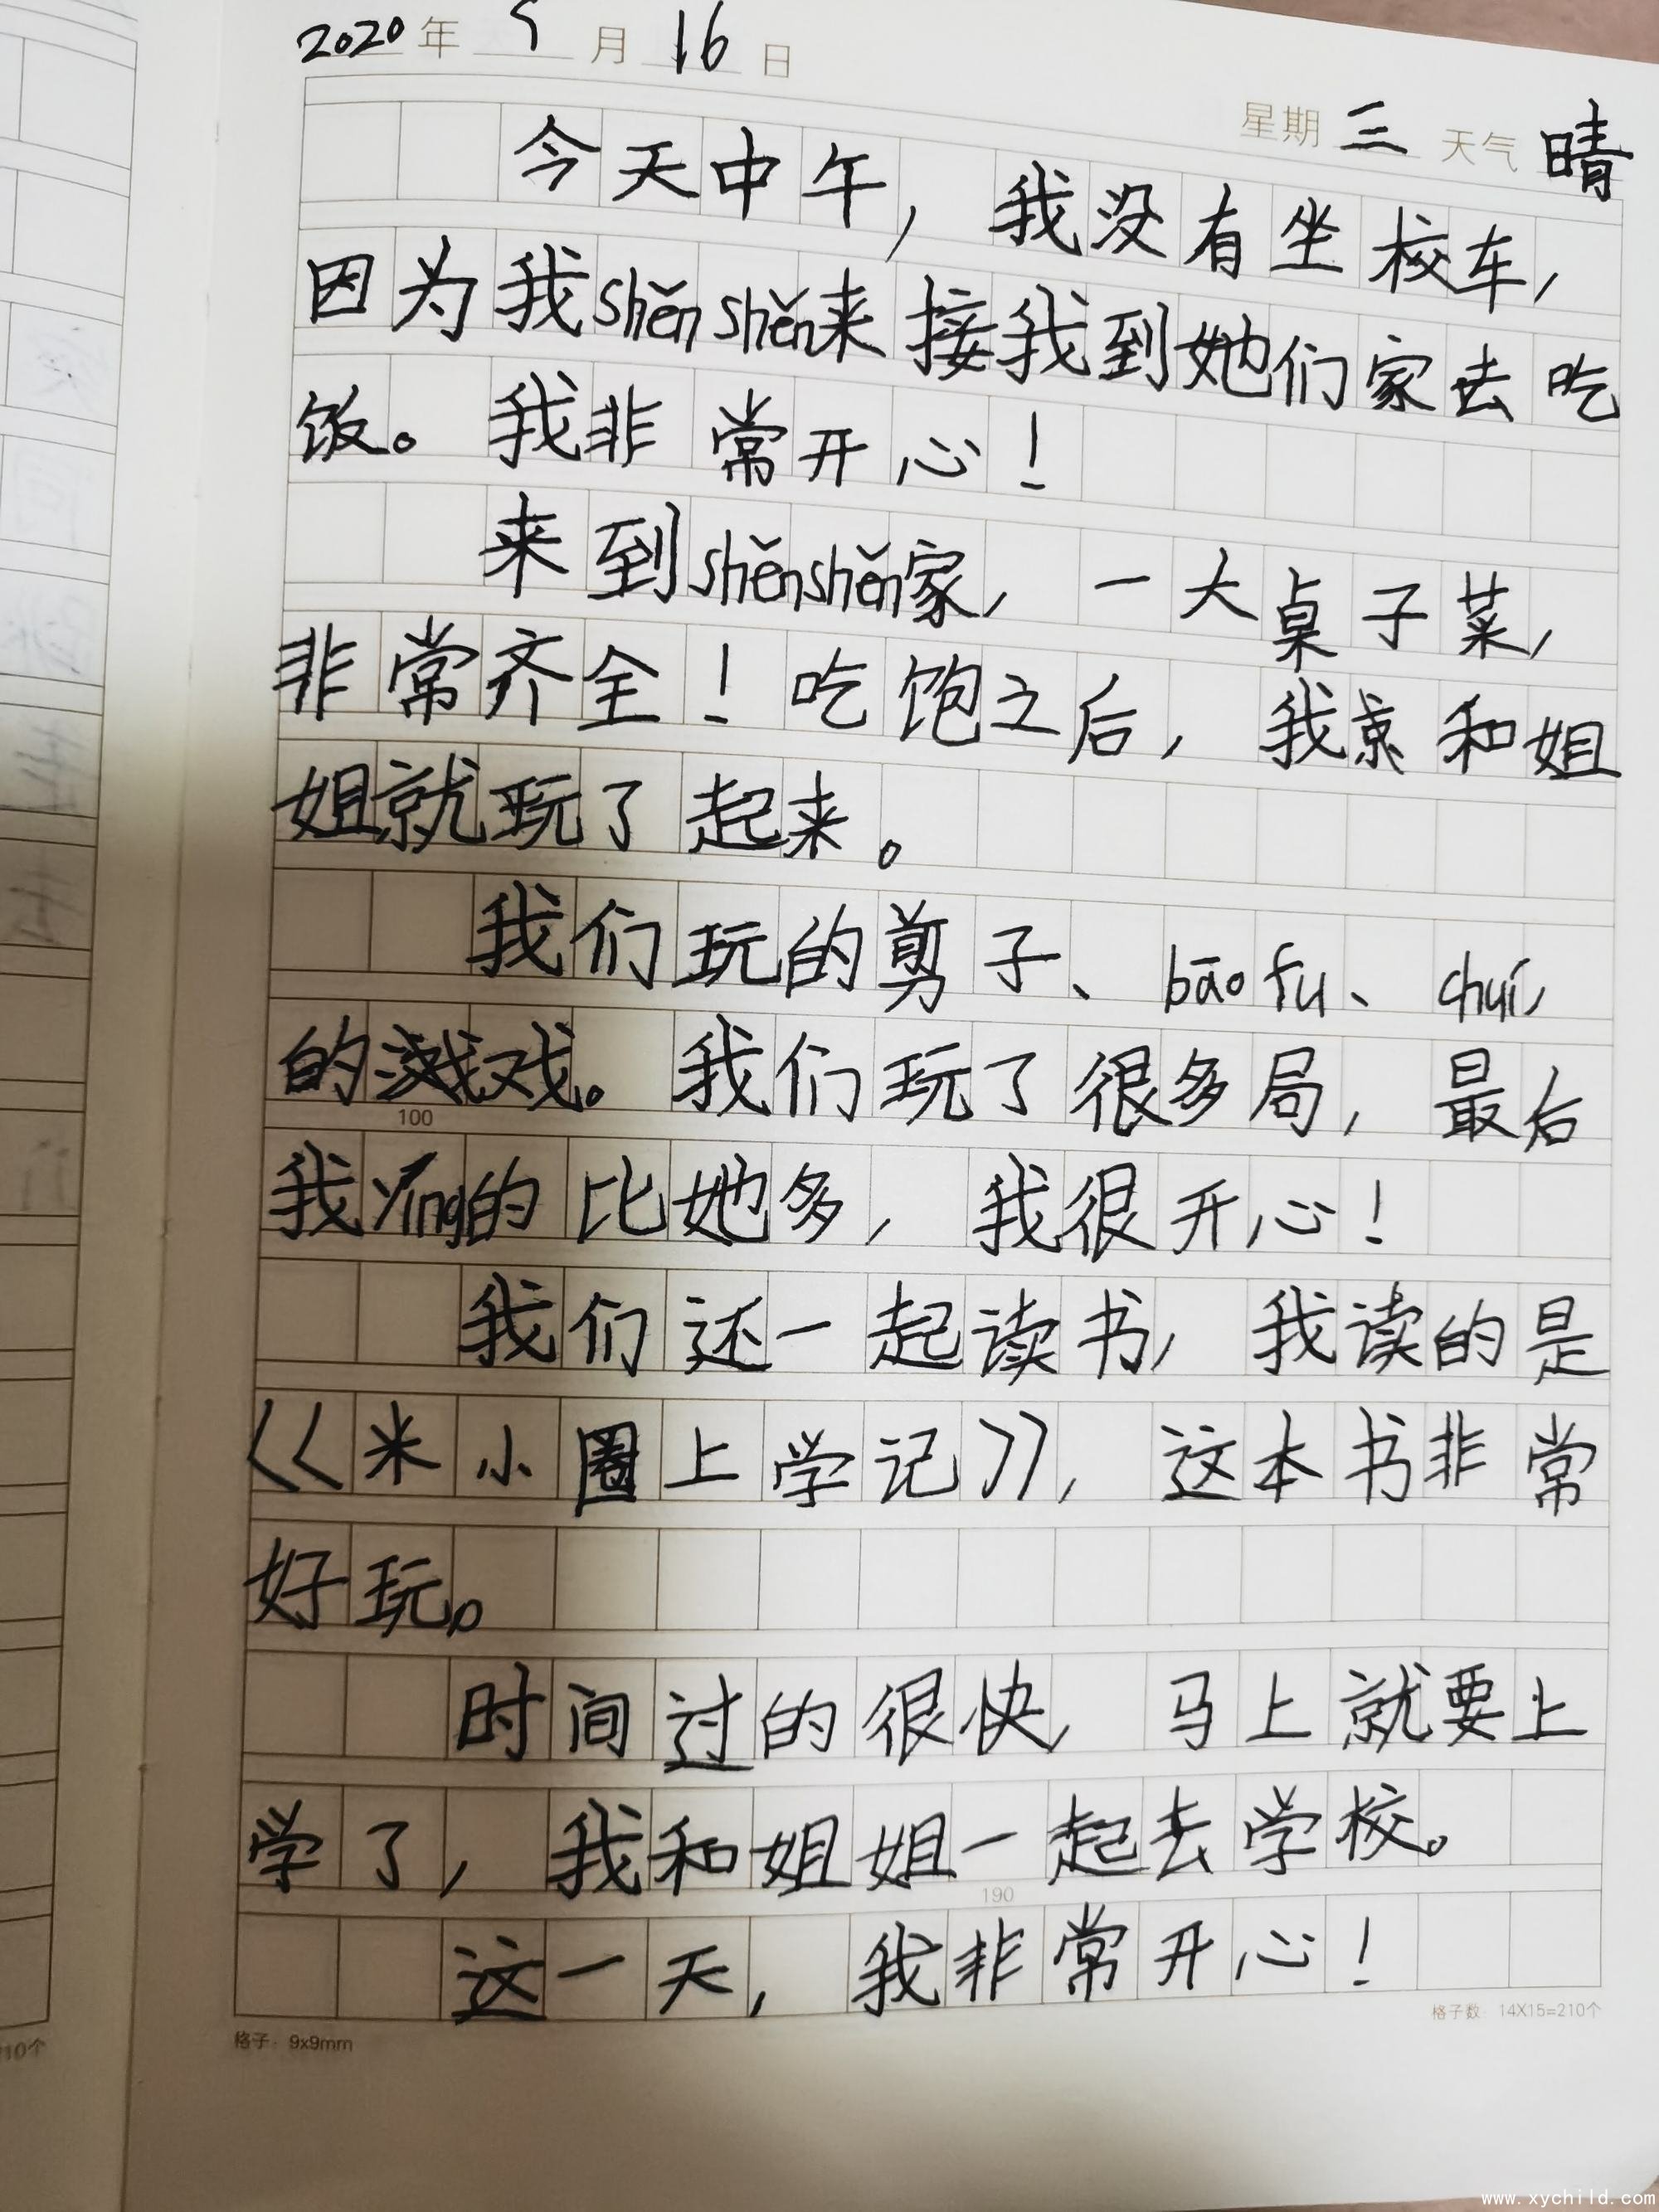 2020年 9月 16日
星期 三 天气 晴
今天中午，我没有坐校车，
因为我shěnshěn来接我到她们家去吃
饭。我非常开心！
来到shěnshěn家，一大桌子菜，
非常齐全！吃饱之后，我和姐
姐就玩了起来。
我们玩的剪子、bāofu、chuí，
的戏。我们玩了很多局，最后
我yíng的比她多，我很开心！
100
我们还一起读书，我读的是
《米小圈上学记》，这本书非常
好玩。
时间过的很快，马上就要上
学了，我和姐姐一起去学校。
190
这一天，我非常开心！
格子：9x9mm
格子数：14X15=210个
10个
www.xychild.com